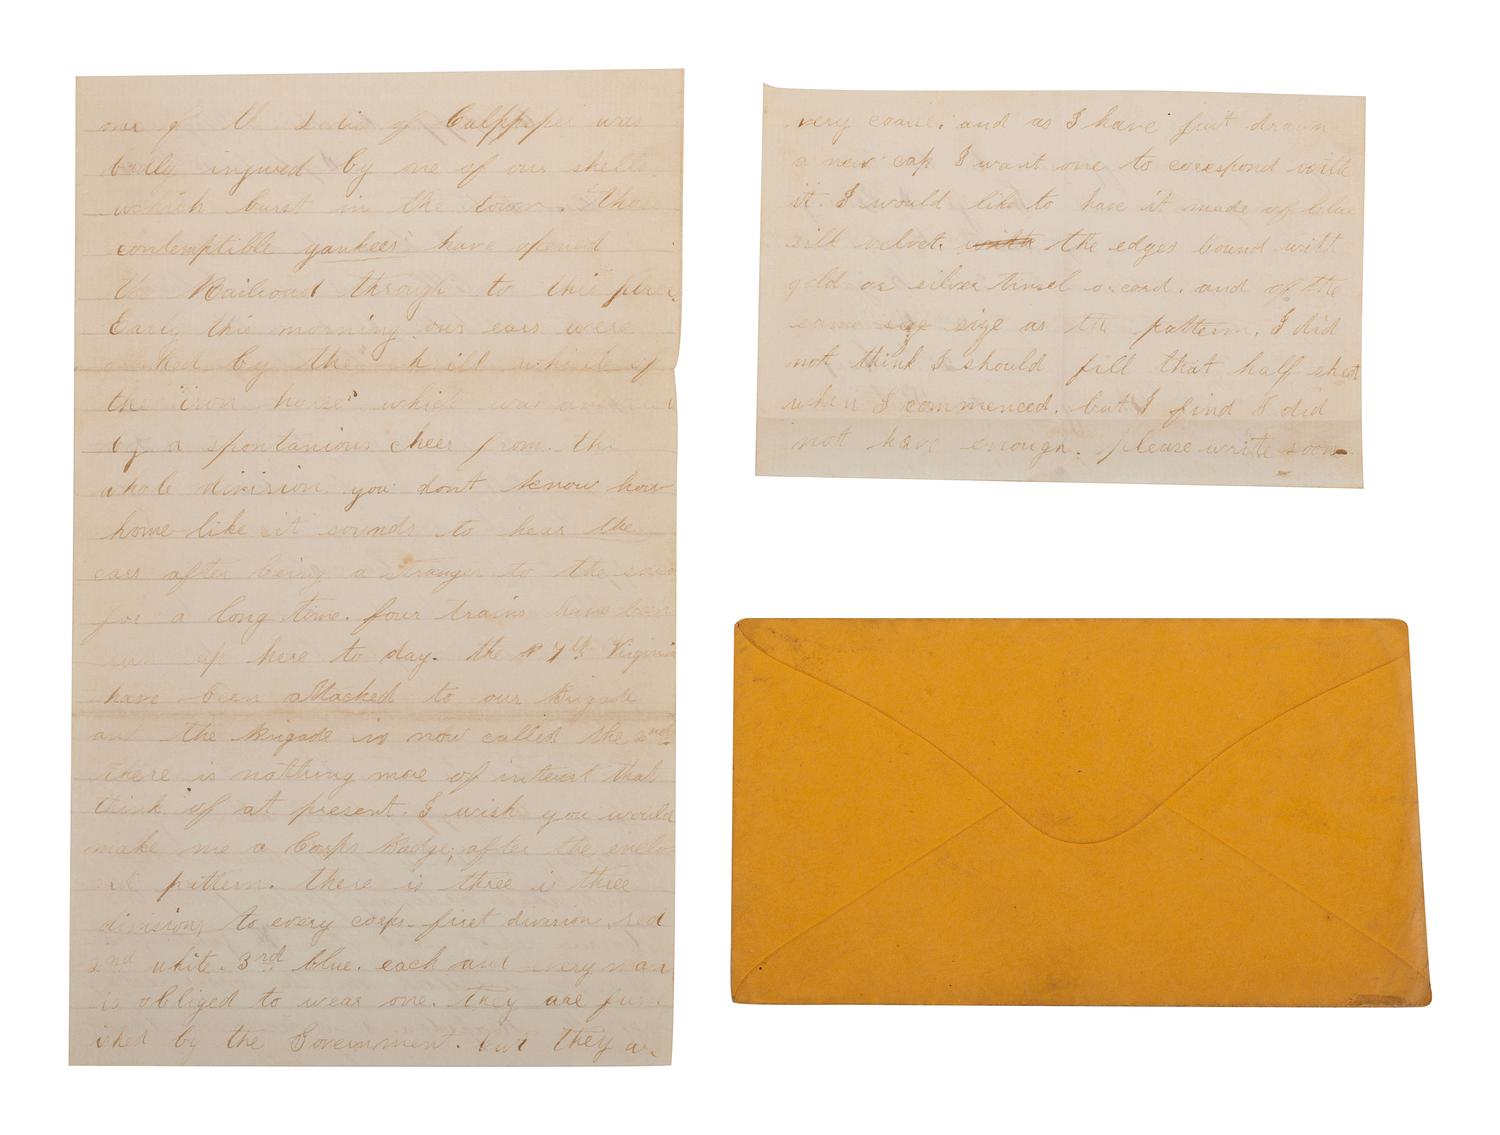 one of the ladies of Culppeper was
badly ingured by one of our shells
which burst in the town. Those
contemptible yankees have opened
the Railroad through to this place
Early this morning our ears were
by the shrill whistle of
the "iron horse" which was answered
by a spontanious cheer from the
whole division. you dont know how
home like it sounds to hear the
cars after being a stranger to the sound
for a long time. four trains have been
up here to day. the 7th Virginia
have been attacked to our Brigade
and the Brigade is now called the 2nd
There is nothing more of interest that
think of at present. I wish you would
make me a Corps Badge, after the enclo-
sed pattern. there is three is three
divisions to every corps. first division, red
2nd white. 3rd blue. each and every man
is obliged to wear one. they are furn
ished by the Government. but they are
very coarse, and as I have just drawn
a new cap I want one to corespond with
it. I would like to have it made of blue
silk velvet. with the edges bound with
gold or silver tinsel or cord. and of the
same size as the pattern. I did
not think I should fill that half sheet
when I commenced. but I find I did
not have enough. please write soon